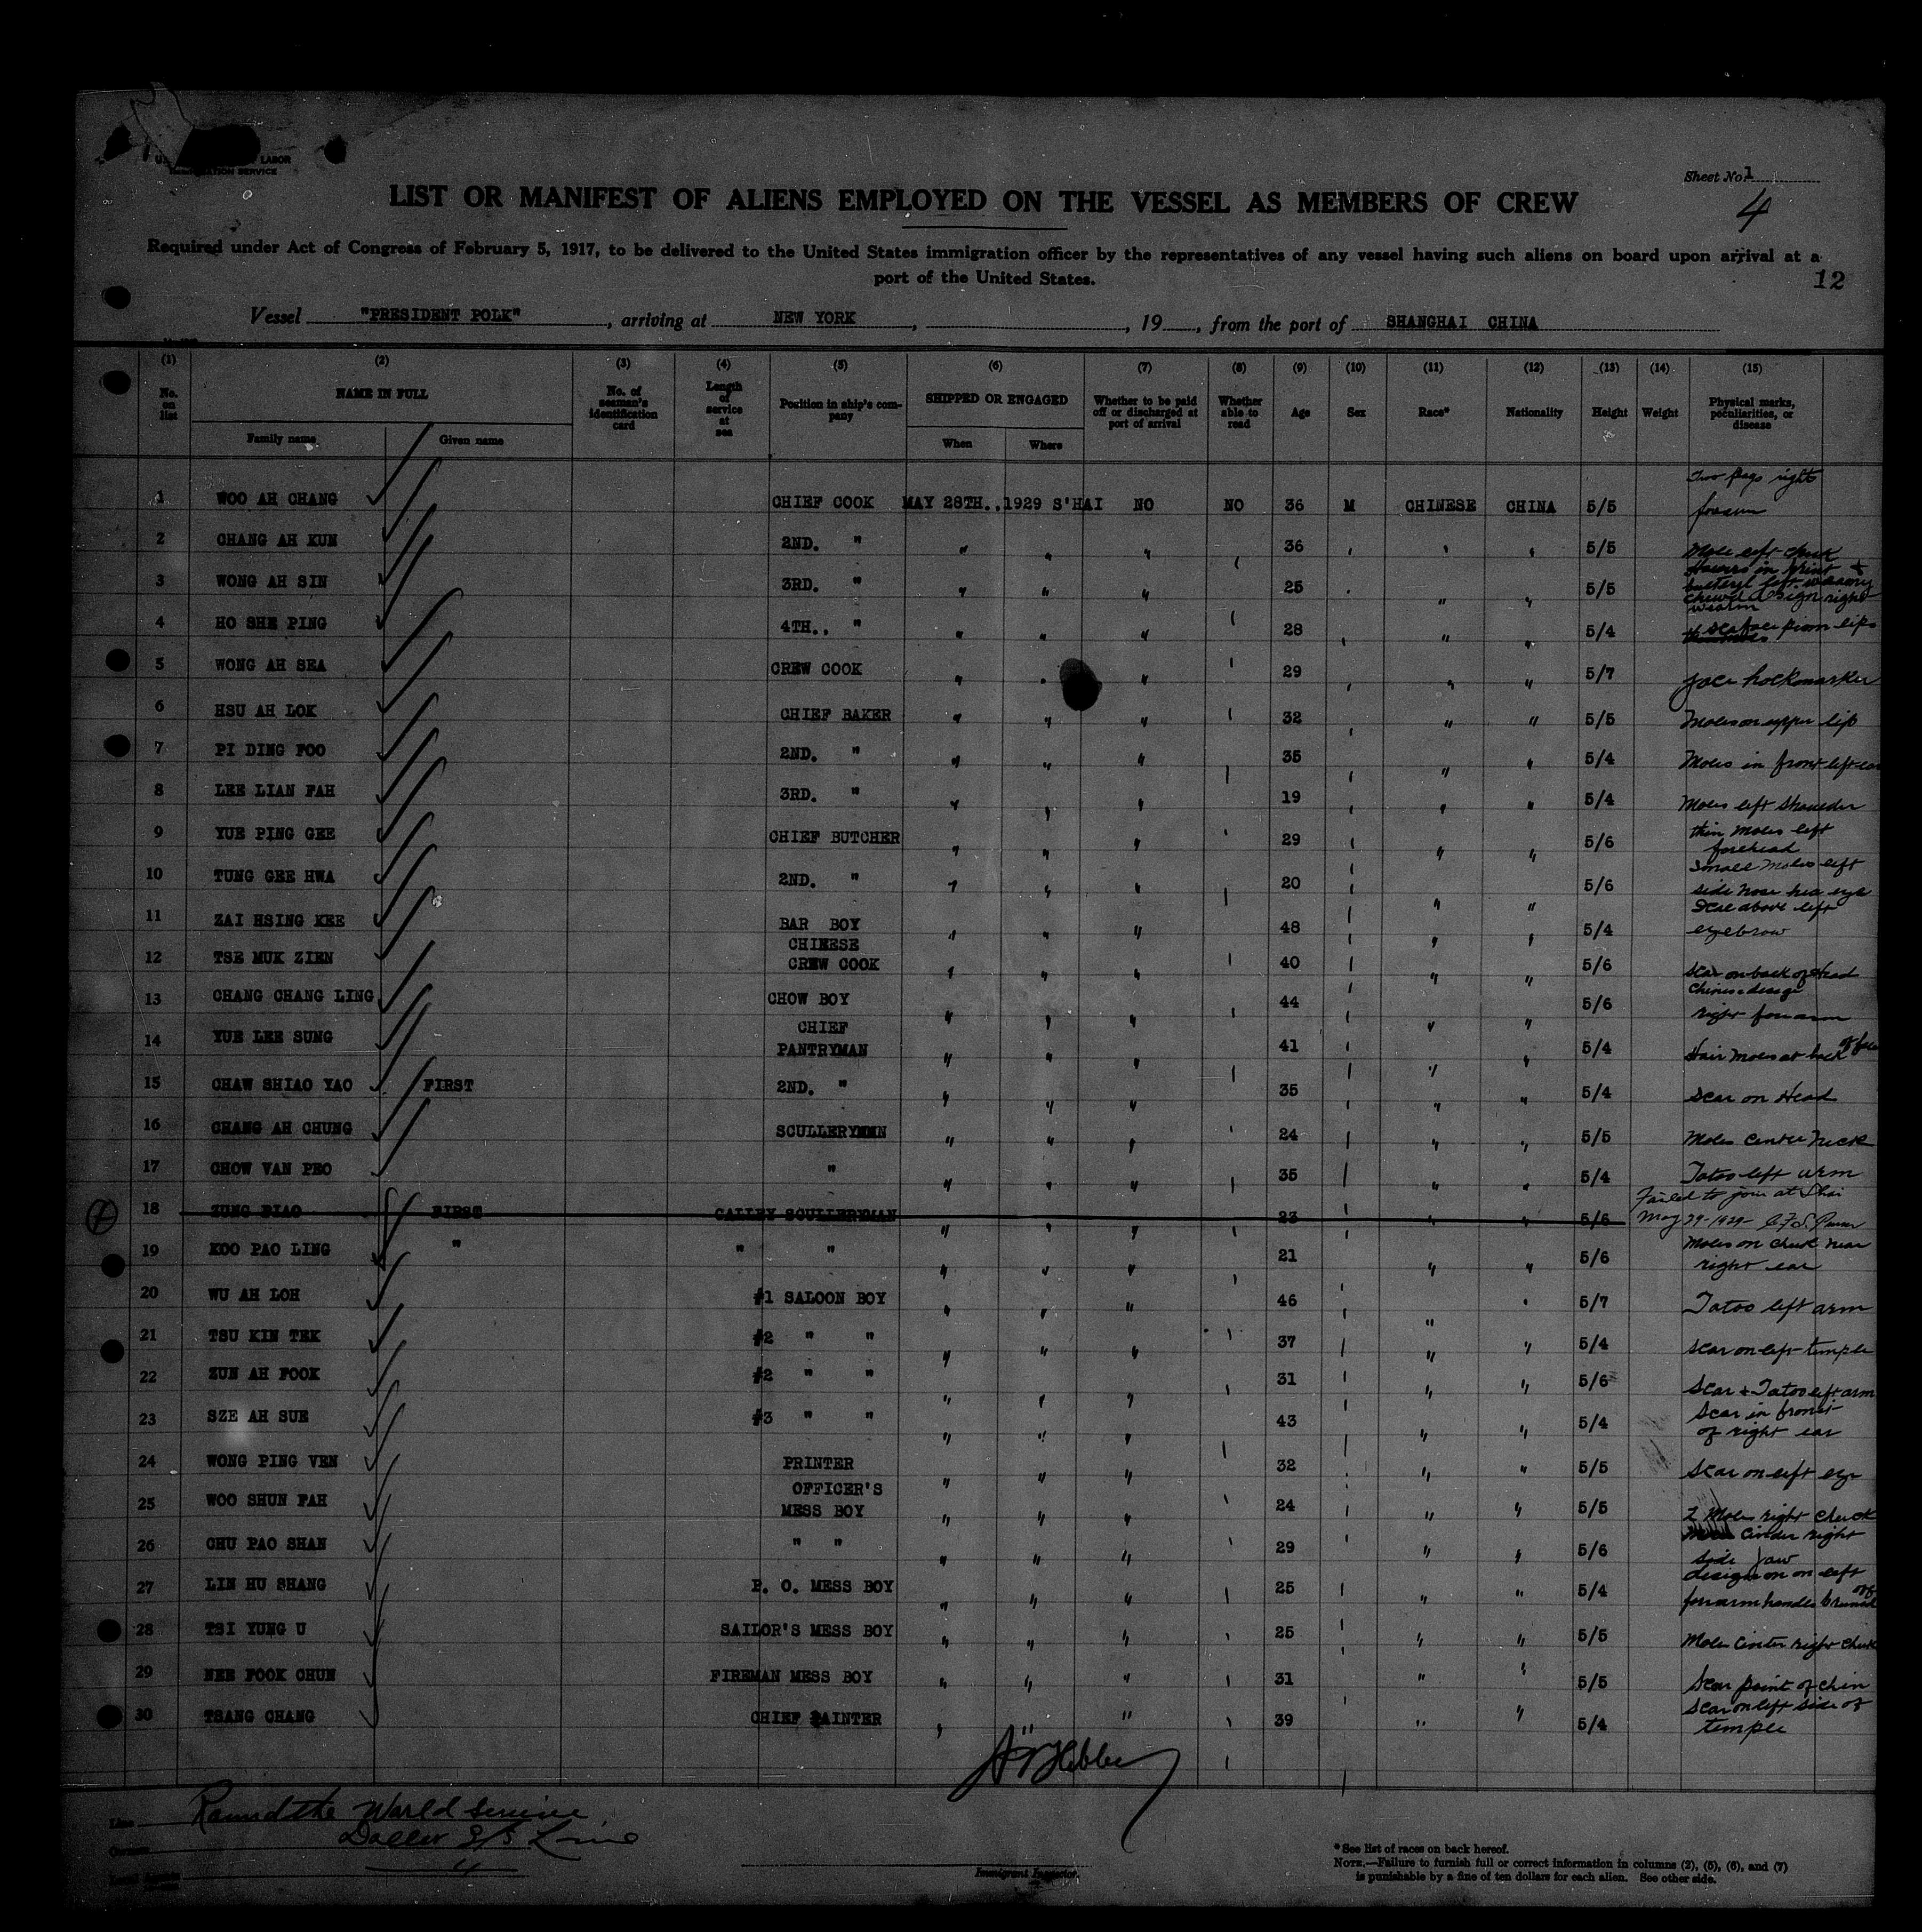 LABOR
Sheet No. 1
LIST OR MANIFEST OF ALIENS EMPLOYED ON THE VESSEL AS MEMBERS OF CREW
4
Required under Act of Congress of February 5, 1917, to be delivered to the United States immigration officer by the representatives of any vessel having such aliens on board upon arrival at a
port of the United States.
12
Vessel "PRESIDENT POLK", arriving at NEW YORK, , 19 , from the port of SHANGHAI CHINA
(1) (2) (3) (4) (5) (6) (7) (8) (9) (10) (11) (12) (13) (14) (15)
No. on list NAME IN FULL Family name Given name No. of seaman's identification card Length of service at sea Position in ship's company SHIPPED OR ENGAGED When Where Whether to be paid off or discharged at port of arrival Whether able to read Age Sex Race* Nationality Height Weight Physical marks, peculiarities, or disease
1 WOO AH CHANG CHIEF COOK MAY 28TH.,1929 S'HAI NO NO 36 M CHINESE CHINA 5/5 Two flags right forearm
2 CHANG AH KUN 2ND. " " " " 36 " " 5/5 Mole left cheek
3 WONG AH SIN 3RD. " " " " 25 " " 5/5
4 HO SHE PING 4TH., " " " " 28 " " 5/4
5 WONG AH SEA CREW COOK " " " 29 " " 5/7 face
6 HSU AH LOK CHIEF BAKER " " " 32 " " 5/5 Moles on upper lip
7 PI DING FOO 2ND. " " " " 35 " " 5/4 Moles in front left ear
8 LEE LIAN FAH 3RD. " " " " 19 " " 5/4 Moles left shoulder
9 YUE PING GEE CHIEF BUTCHER " " " 29 " " 5/6 thin moles left forehead
10 TUNG GEE HWA 2ND. " " " " 20 " " 5/6 Small moles left side nose eye
11 ZAI HSING KEE BAR BOY " " " 48 " " 5/4 Scar above left eyebrow
12 TSE MUK ZIEN CHINESE CREW COOK " " " 40 " " 5/6 scar on back of Head
13 CHANG CHANG LING CHOW BOY " " " 44 " " 5/6 Chinese right forearm
14 YUE LEE SUNG CHIEF PANTRYMAN " " " 41 " " 5/4 Hair moles at back of
15 CHAW SHIAO YAO FIRST 2ND. " " " " 35 " " 5/4 Scar on Head
16 CHANG AH CHUNG SCULLERYMMN " " " 24 " " 5/5 Moles center neck
17 CHOW VAN PEO " " " " 35 " " 5/4 Tatoo left arm
18 ZUNG PIAO FIRST GALLEY SCULLERYMAN " " " 23 " " 5/6 Failed to join at S'hai May 29-1929-
19 KOO PAO LING " " " " " " 21 " " 5/6 Moles on cheek near right ear
20 WU AH LOH #1 SALOON BOY " " " 46 " " 5/7 Tatoo left arm
21 TSU KIN TEK #2 " " " " " 37 " " 5/4 scar on left temple
22 ZUN AH FOOK #2 " " " " " 31 " " 5/6 Scar + Tatoo left arm
23 SZE AH SUE #3 " " " " " 43 " " 5/4 Scar in front of right ear
24 WONG PING VEN PRINTER " " " 32 " " 5/5 Scar on left eye
25 WOO SHUN FAH OFFICER'S MESS BOY " " " 24 " " 5/5 2 Moles right cheek
26 CHU PAO SHAN " " " " " 29 " " 5/6 right side jaw
27 LIN HU SHANG P. O. MESS BOY " " " 25 " " 5/4 on left forearm
28 TSI YUNG U SAILOR'S MESS BOY " " " 25 " " 5/5 Mole center right cheek
29 NEE FOOK CHUN FIREMAN MESS BOY " " " 31 " " 5/5 Scar point of chin
30 TSANG CHANG CHIEF PAINTER " " " 39 " " 5/4 scar on left side of temple
Line Round the World Service
Owners Dollar S/S Line
4
Immigrant Inspector.
*See list of races on back hereof.
NOTE.—Failure to furnish full or correct information in columns (2), (5), (6), and (7)
is punishable by a fine of ten dollars for each alien. See other side.